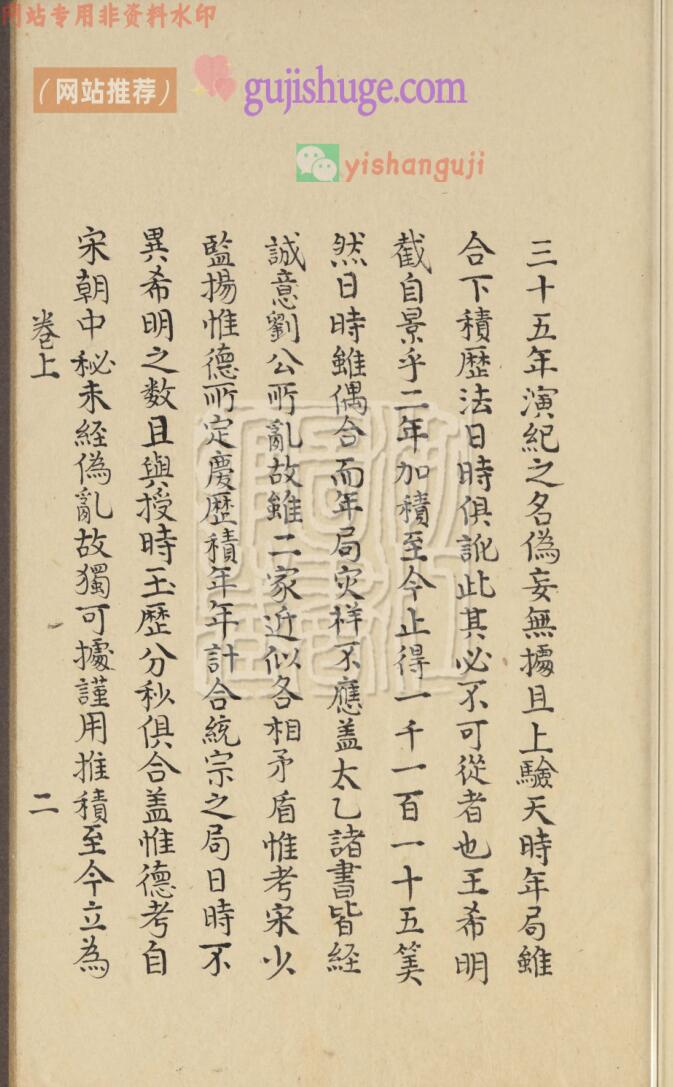 网站专用非资料水印
（网站推荐）
gujishuge.com
yishanguji
三十五年演紀之名偽妄無據且上驗天時年局雖
合下積歷法日時俱訛此其必不可從者也王希明
截自景乎二年加積至今止得一千一百一十五筭
然日時雖偶合而年局灾祥不應盖太乙諸書皆經
誠意劉公所亂故雖二家近似各相矛盾惟考宋少
監揚惟德所定慶歷積年年計合統宗之局日時不
異希明之数且與授時玉歷分秋俱合盖惟德考自
宋朝中秘未經偽亂故獨可據謹用推積至今立為
卷上
二